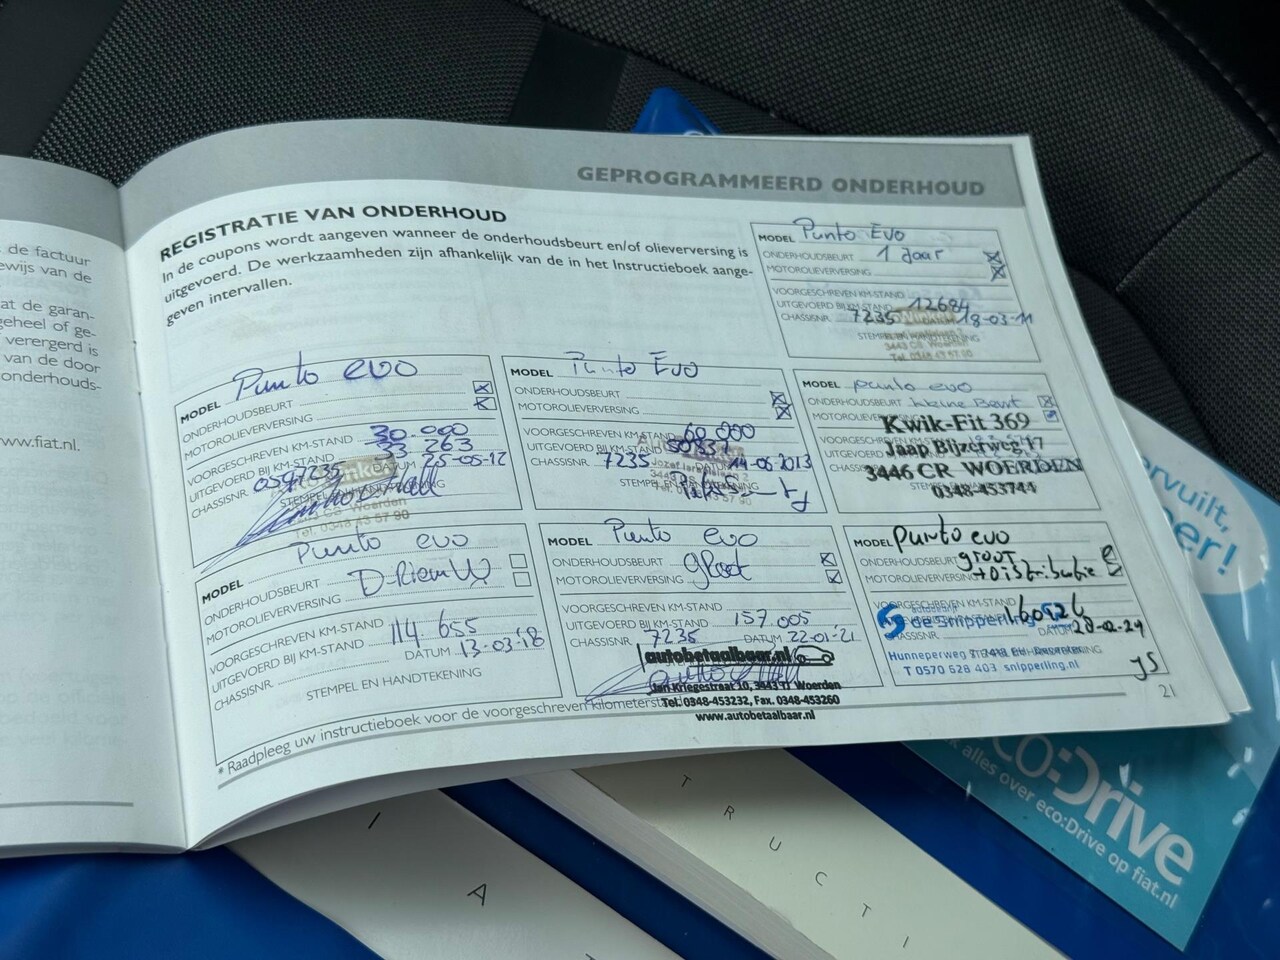 de factuur
ewijs van de
at de garan-
geheel of ge-
verergerd is
van de door
onderhouds-
www.fiat.nl.
GEPROGRAMMEERD ONDERHOUD
REGISTRATIE VAN ONDERHOUD
In de coupons wordt aangeven wanneer de onderhoudsbeurt en/of olieverversing is
uitgevoerd. De werkzaamheden zijn afhankelijk van de in het Instructieboek aange-
geven intervallen.
MODEL Punto Evo
ONDERHOUDSBEURT 1 Jaar
MOTOROLIEVERVERSING
VOORGESCHREVEN KM-STAND
UITGEVOERD BIJ KM-STAND 12684
CHASSISNR. 7235 18-03-11
MODEL Punto evo
ONDERHOUDSBEURT
MOTOROLIEVERVERSING
VOORGESCHREVEN KM-STAND 30.000
UITGEVOERD BIJ KM-STAND 33 263
CHASSISNR. 7235 DATUM 25-05-12
STEMPEL EN HANDTEKENING
Tel. 0348 43 57 90
MODEL Punto Evo
ONDERHOUDSBEURT
MOTOROLIEVERVERSING
VOORGESCHREVEN KM-STAND 60.000
UITGEVOERD BIJ KM-STAND
CHASSISNR. 7235 DATUM 14-06-2013
MODEL punto evo
ONDERHOUDSBEURT kleine Beurt
Kwik-Fit 369
Jaap Bijzerweg 17
3446 CR WOERDEN
0348-453744
MODEL Punto evo
ONDERHOUDSBEURT D-Riem W
MOTOROLIEVERVERSING
VOORGESCHREVEN KM-STAND
UITGEVOERD BIJ KM-STAND 114.655
CHASSISNR. DATUM 13-03-18
STEMPEL EN HANDTEKENING
MODEL Punto evo
ONDERHOUDSBEURT groot
MOTOROLIEVERVERSING
VOORGESCHREVEN KM-STAND
UITGEVOERD BIJ KM-STAND 157.005
CHASSISNR. 7235 DATUM 22-01-21
autobetaalbaar.nl
Jan Kriegestraat 10, Woerden
Tel. 0348-453232, Fax. 0348-453260
www.autobetaalbaar.nl
MODEL punto evo
ONDERHOUDSBEURT groot
MOTOROLIEVERVERSING + distributie
VOORGESCHREVEN KM-STAND
autobedrijf
de Snipperling
CHASSISNR. DATUM
Hunneperweg
T 0570 628 403 snipperling.nl
* Raadpleeg uw instructieboek voor de voorgeschreven kilometerst
21
ervuilt,
er!
eco:Drive
k alles over eco:Drive op fiat.nl
I A
T R U C T I